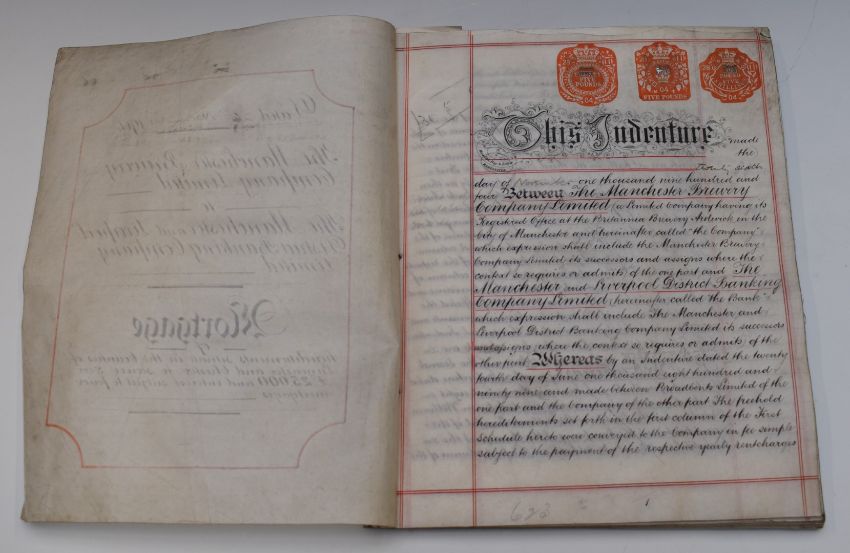 FIVE POUNDS
04
FIVE POUNDS
04
POUND
04
This Indenture made
the
day of November one thousand nine hundred and
four Between The Manchester Brewery
Company Limited (a Limited Company having its
Registered Office at the Britannia Brewery Ardwick in the
City of Manchester and hereinafter called "the Company"
which expression shall include the Manchester Brewery
Company Limited its successors and assigns where the
context so requires or admits) of the one part and The
Manchester and Liverpool District Banking
Company Limited (hereinafter called "the Bank"
which expression shall include The Manchester and
Liverpool District Banking Company Limited its successors
and assigns where the context so requires or admits) of the
other part Whereas by an Indenture dated the twenty
fourth day of June one thousand eight hundred and
ninety nine and made between Broadbents Limited of the
one part and the Company of the other part The freehold
hereditaments set forth in the first column of the First
Schedule hereto were conveyed to the Company in fee simple
subject to the payment of the respective yearly rentcharges
1
623
The Manchester Brewery
Company Limited
The Manchester and Liverpool
District Banking Company
Limited
Mortgage
of